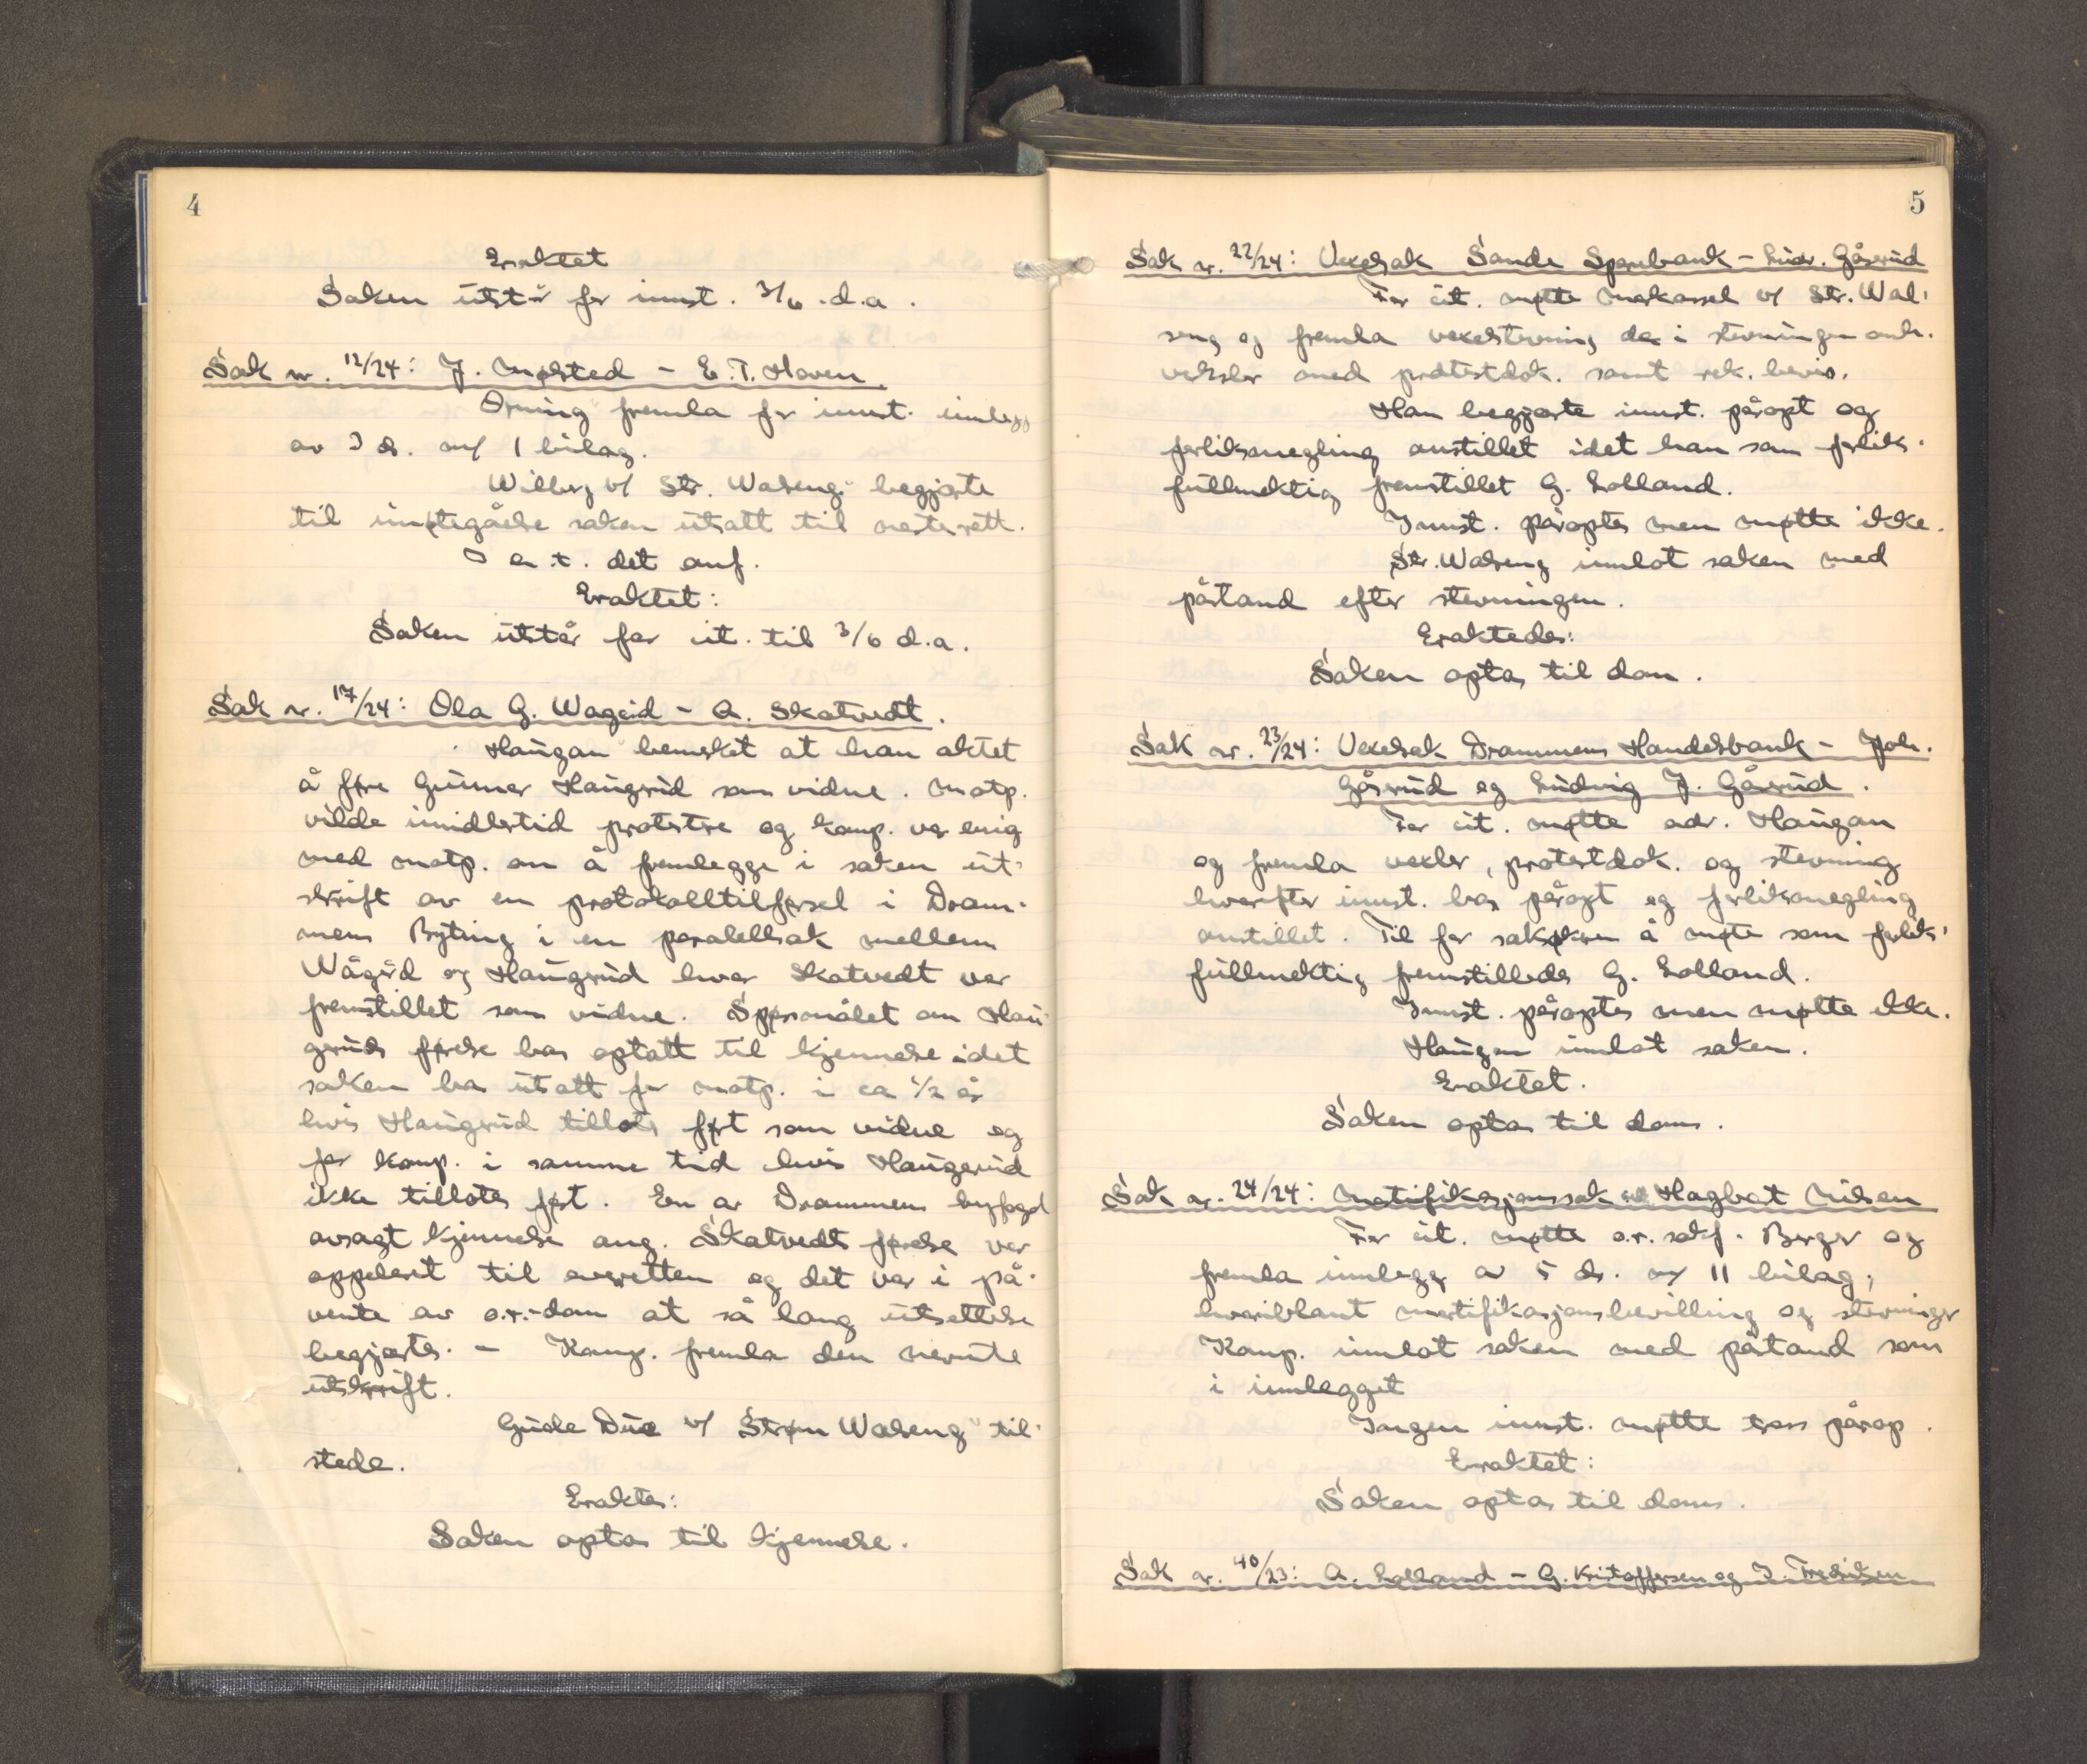 4
Eraktet
Saken utstår for innst. 3/6 . d.a.
Sak nr. 12/24: J. Mølsted - E. T. Haven.
Orning fremla for innst. innlegg
av 3 ds. m/ 1 bilag.
Wilberg v/ Str. Walseng begjærte
til imøtegåelse saken utsatt til neste rett.
O e.t. det anf.
Eraktet:
Saken utstår for cit. til 3/6 d.a.
Sak nr. 17/24: Ola G. Wageid - A. Skatvedt.
Haugan bemerket at han aktet
å føre Gunner Haugrud som vidne. Motp.
vilde imidlertid protestere og komp. var enig
med motp. om å fremlegge i saken ut-
skrift av en protokolltilførsel i Dram-
mens Byting i en paralellsak mellem
Wågård og Haugrud hvor Skatvedt var
fremstillet som vidne. Spørsmålet om Hau-
geruds førelse bes optatt til kjennelse idet
saken bes utsatt for motp. i ca 1/2 år
hvis Haugrud tillates ført som vidne og
for komp. i samme tid hvis Haugerud
ikke tillotes ført. En av Drammens byfogd
avsagt kjennelse ang. Skatvedts førelse var
appelert til overretten og det var i på-
vente av o.r.-dom at så lang utsettelse
begjærtes. - Komp. fremla den nevnte
utskrift.
Gude Due v/ Strøm Walseng til-
stede.
Eraktes:
Saken optas til kjennelse.
5
Sak nr. 22/24: Vexelsak Sande Sparebank - Ludv. Gåsrud
For cit. møtte v/ Str. Wal-
seng og fremla vexelstevning de i stevningen omh.
veksler med protestdok. samt rek. bevis.
Han begjærte innst. påropt og
forliksmegling anstillet idet han som forliks-
fullmektig fremstillet G. Lolland.
Innst. påroptes men møtte ikke.
Str. Walseng innlot saken med
påstand efter stevningen.
Eraktedes:
Saken optas til dom.
Sak nr. 23/24: Vexelsak Drammens Handelsbank - Joh.
Gåsrud og Ludvig J. Gåsrud.
For cit. møtte adv. Haugan
og fremla vexler, protestdok. og stevning
hvorefter innst. bes påropt og forliksmegling
anstillet. Til for saksøkeren å møte som forliks-
fullmektig fremstilledes G. Lolland.
Innst. påroptes men møtte ikke.
Haugan innlot saken.
Eraktet.
Saken optas til doms.
Sak nr. 24/24: Mortifikasjonssak v/ Hagbart Nilsen
For cit. møtte o.r. sakf. Berger og
fremla innlegg av 5 ds. m/ 11 bilag,
hvoriblant mortifikasjonsbevilling og stevninger
Komp. innlot saken med påstand som
i innlegget
Ingen innst. møtte tross pårop.
Eraktet:
Saken optas til doms.
Sak nr. 40/23: A. Lolland - G. Kristoffersen og J. Fredriksen